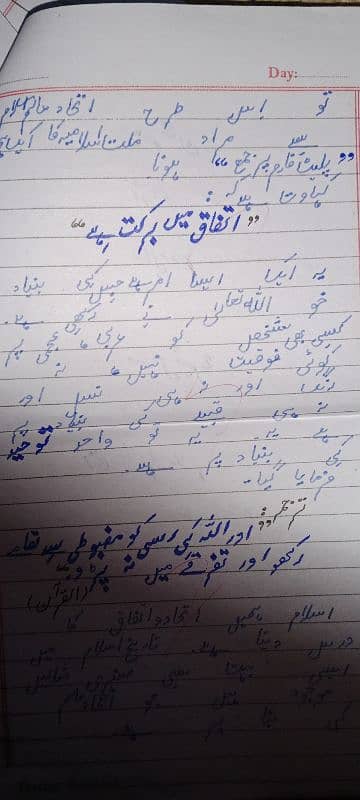 Day:
تو اس طرح اتحاد عالم اسلام
سے مراد ملت اسلامیہ کا ایک
"پلیٹ فارم پر جمع" ہونا
کہاوت ہے کہ :
"اتفاق میں برکت ہے"
یہ ایک ایسا امر ہے جس کی بنیاد
خو اللہ تعالیٰ نے رکھی ہے۔
کسی بھی شخص کو عربی، عجمی پر
کوئی فوقیت نہیں، نہ
رنگ اور نہ ہی نسل اور
نہ ہی قبیلہ کی بنیاد پر
ہے یہ تو واحد توحید
کی بنیاد پر ہے۔
فرمایا گیا۔
ترجمہ: "اور اللہ کی رسی کو مضبوطی سے تھامے
رکھو اور تفرقے میں نہ پڑو" (القرآن)
اسلام ہمیں اتحاد و اتفاق کا
درس دیتا ہے۔ تاریخ اسلام میں
ایسی بہت سی مثالیں
موجود ہیں جو اتحاد